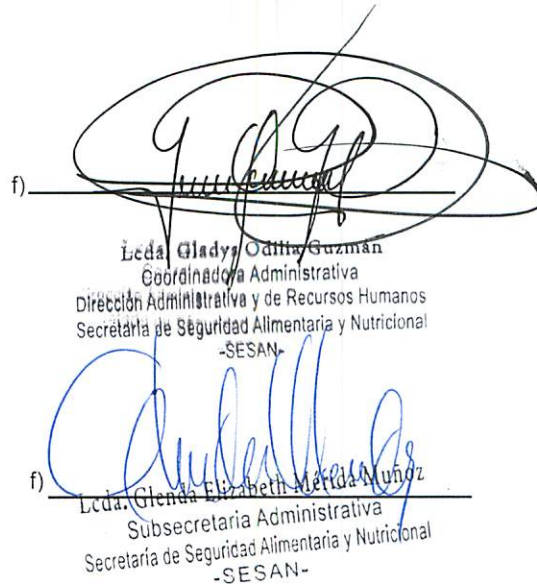 f)
Lcda. Gladys Odilia Guzmán
Coordinadora Administrativa
Dirección Administrativa y de Recursos Humanos
Secretaría de Seguridad Alimentaria y Nutricional
-SESAN-
f)
Lcda. Glenda Elizabeth Mérida Muñoz
Subsecretaria Administrativa
Secretaría de Seguridad Alimentaria y Nutricional
-SESAN-